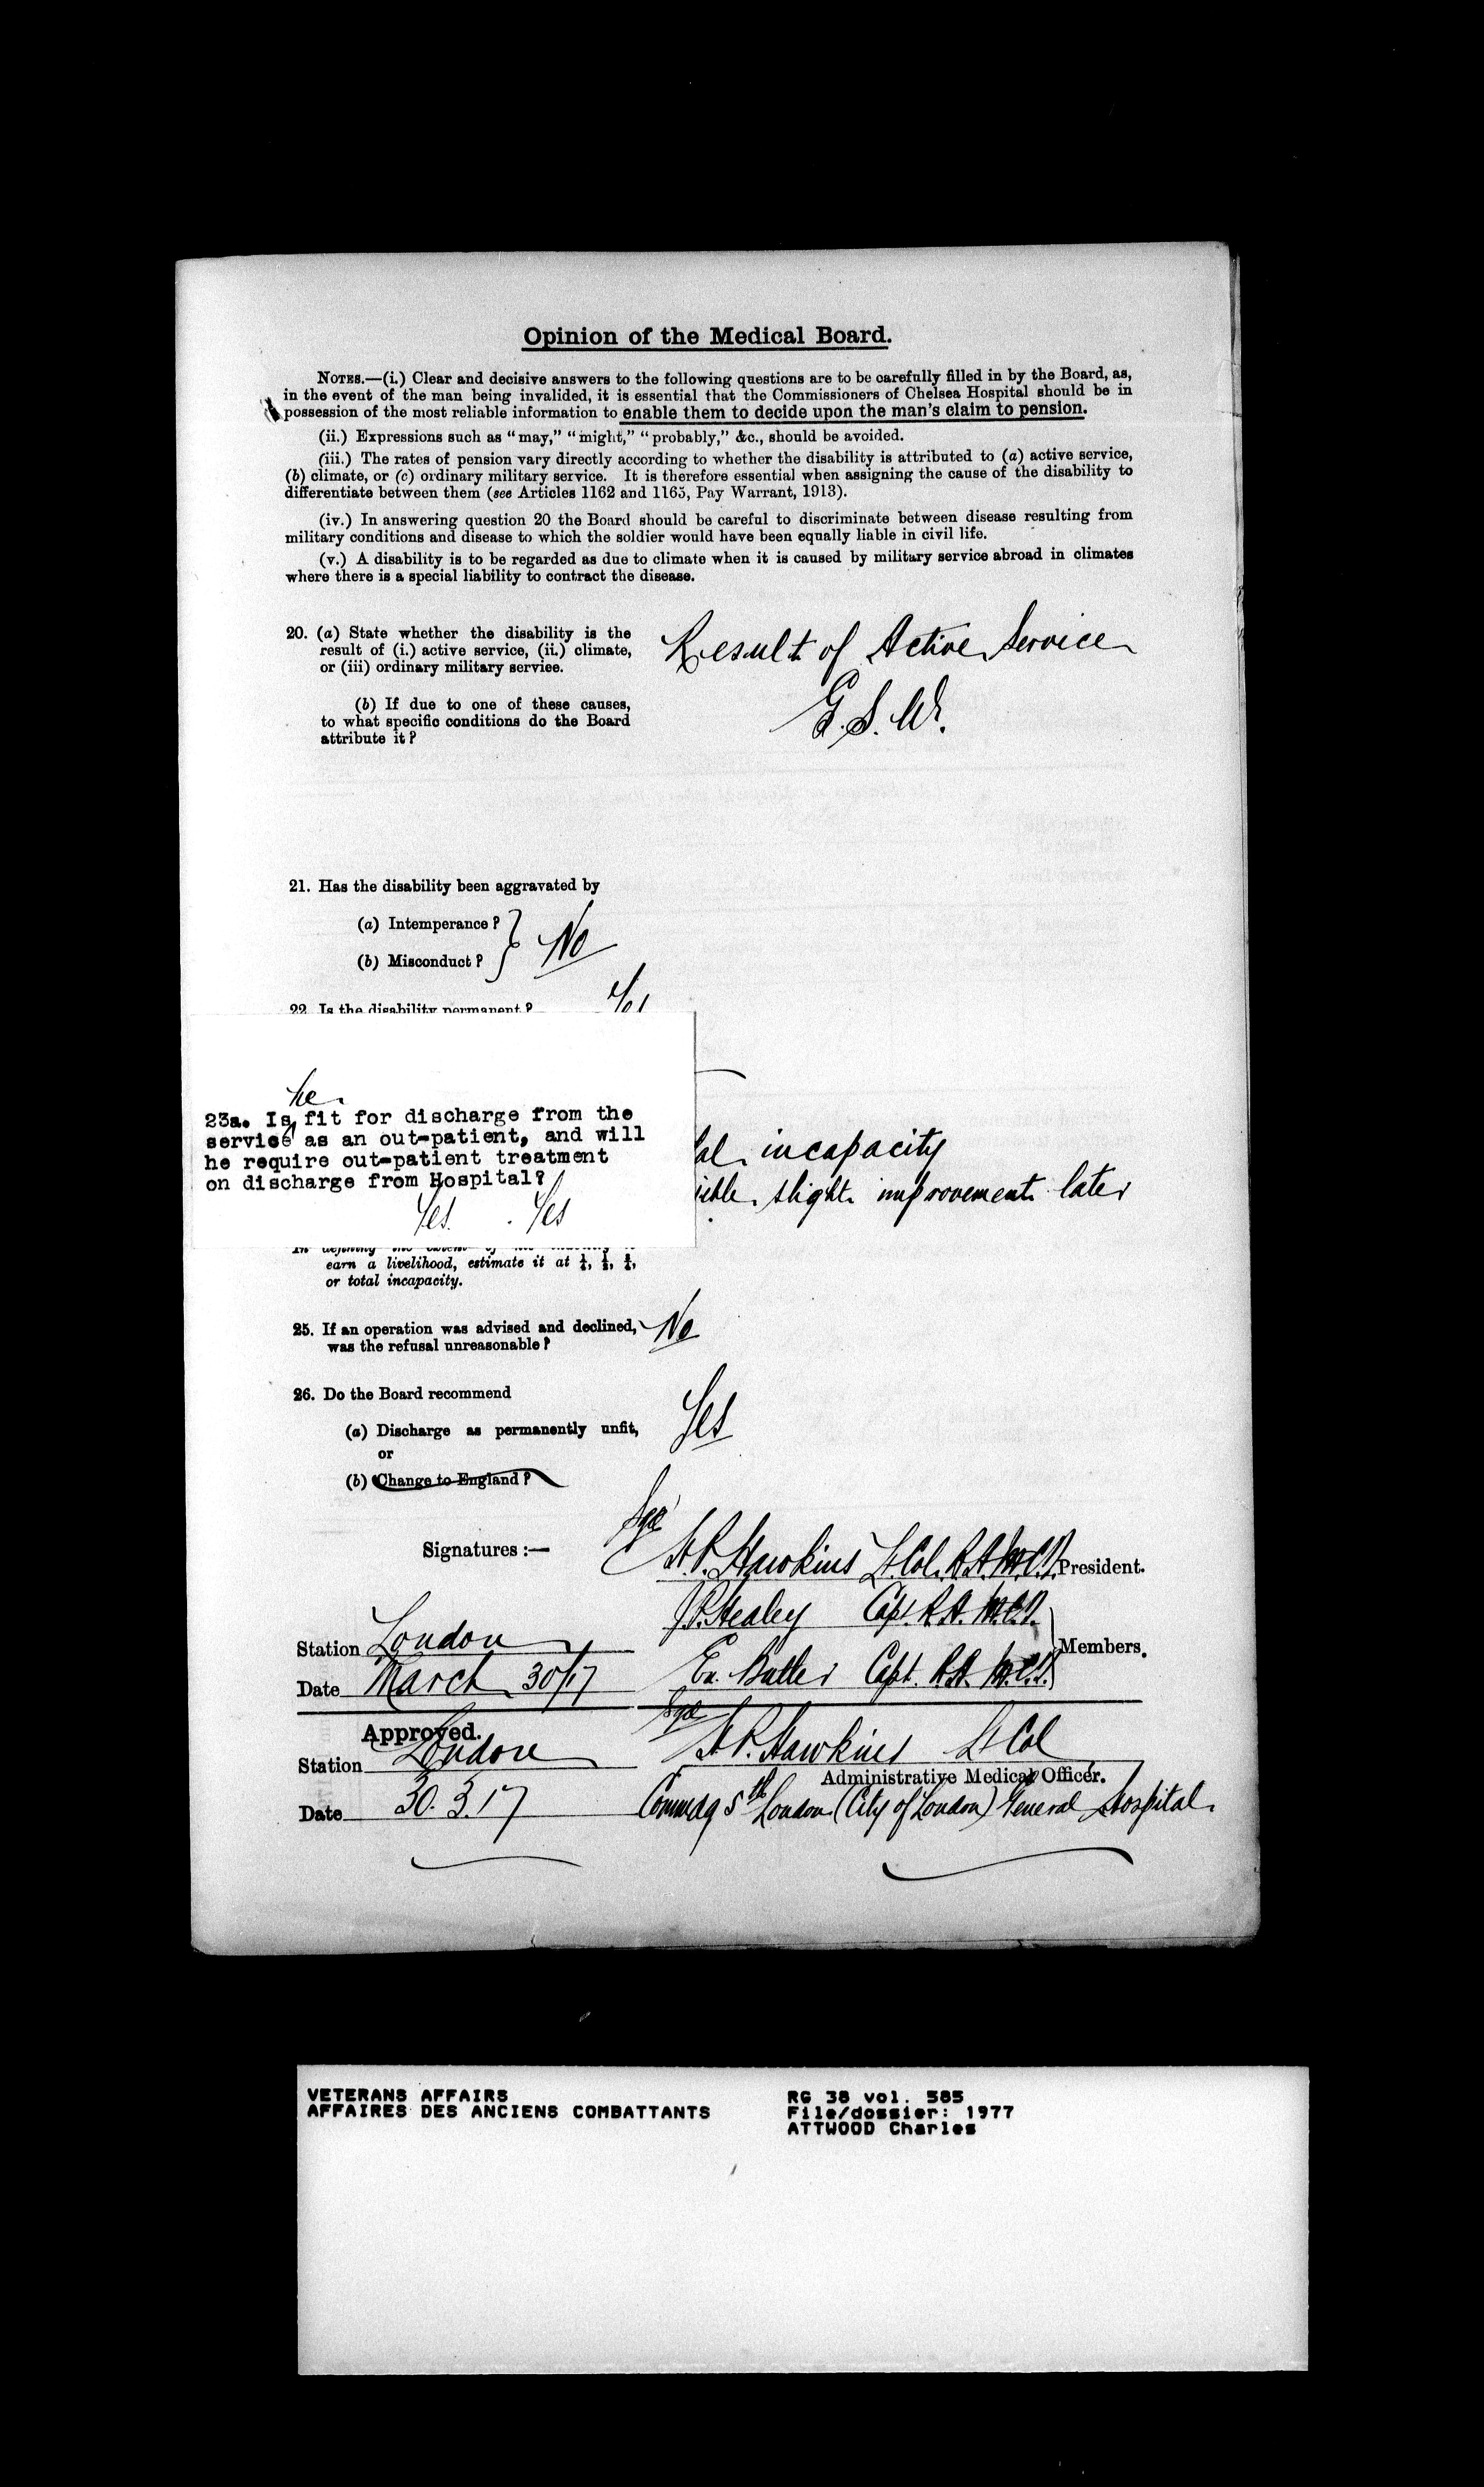 Opinion of the Medical Board.
NOTES.—(i.) Clear and decisive answers to the following questions are to be carefully filled in by the Board, as,
in the event of the man being invalided, it is essential that the Commissioners of Chelsea Hospital should be in
possession of the most reliable information to enable them to decide upon the man's claim to pension.
(ii.) Expressions such as "may," "might," "probably," &c., should be avoided.
(iii.) The rates of pension vary directly according to whether the disability is attributed to (a) active service,
(b) climate, or (c) ordinary military service. It is therefore essential when assigning the cause of the disability to
differentiate between them (see Articles 1162 and 1165, Pay Warrant, 1913).
(iv.) In answering question 20 the Board should be careful to discriminate between disease resulting from
military conditions and disease to which the soldier would have been equally liable in civil life.
(v.) A disability is to be regarded as due to climate when it is caused by military service abroad in climates
where there is a special liability to contract the disease.
20. (a) State whether the disability is the
result of (i.) active service, (ii.) climate,
or (iii) ordinary military service.
Result of Active Service
(b) If due to one of these causes,
to what specific conditions do the Board
attribute it?
G.S.W.
21. Has the disability been aggravated by
(a) Intemperance?
(b) Misconduct?
No
22. Is the disability permanent? Yes
he
23a. Is fit for discharge from the
service as an out-patient, and will
he require out-patient treatment
on discharge from Hospital?
Yes. Yes
incapacity
slight improvement later
earn a livelihood, estimate it at ¼, ½, ¾,
or total incapacity.
25. If an operation was advised and declined,
was the refusal unreasonable?
No
26. Do the Board recommend
(a) Discharge as permanently unfit,
or
Yes
(b) Change to England?
Signatures :—
Sgd
H.P. Hawkins Lt Col. R.A.M.C.T. President.
Healey Capt R.A.M.C.T.
Station London
Members.
Date March 30/17
Butler Capt. R.A.M.C.T.
Approved.
Sgd
Station London
H.P. Hawkins Lt Col
Administrative Medical Officer.
Date 30.3.17
Commdg 5th London (City of London) General Hospital.
VETERANS AFFAIRS
AFFAIRES DES ANCIENS COMBATTANTS
RG 38 vol. 585
File/dossier: 1977
ATTWOOD Charles